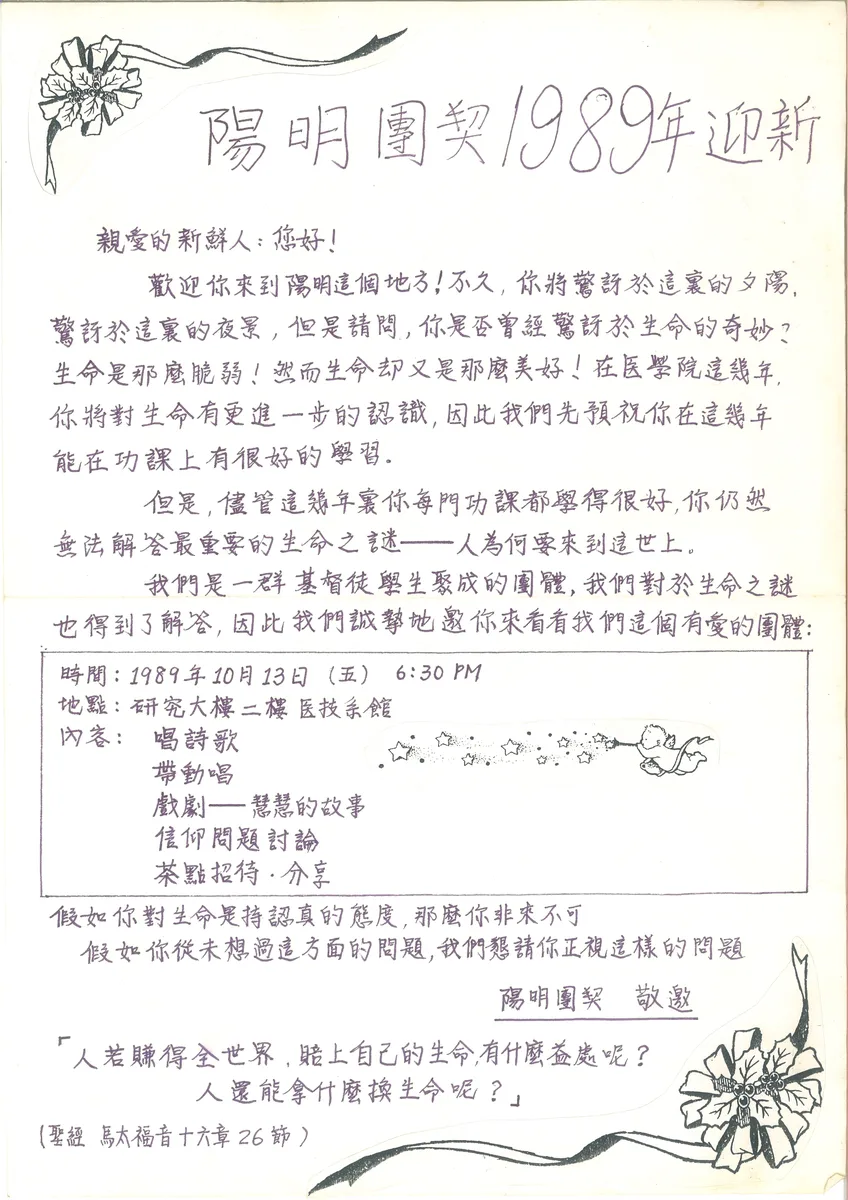 陽明團契1989年迎新
親愛的新鮮人：您好！
歡迎你來到陽明這個地方！不久，你將驚訝於這裏的夕陽，
驚訝於這裏的夜景，但是請問，你是否曾經驚訝於生命的奇妙？
生命是那麼脆弱！然而生命却又是那麼美好！在医學院這幾年，
你將對生命有更進一步的認識，因此我們先預祝你在這幾年
能在功課上有很好的學習。
但是，儘管這幾年裏你每門功課都學得很好，你仍然
無法解答最重要的生命之謎——人為何要來到這世上。
我們是一群基督徒學生聚成的團體，我們對於生命之謎
也得到了解答，因此我們誠摯地邀你來看看我們這個有愛的團體：
時間：1989年10月13日（五） 6:30 PM
地點：研究大樓二樓医技系館
內容： 唱詩歌
帶動唱
戲劇——慧慧的故事
信仰問題討論
茶點招待·分享
假如你對生命是持認真的態度，那麼你非來不可
假如你從未想過這方面的問題，我們懇請你正視這樣的問題
陽明團契 敬邀
「人若賺得全世界，賠上自己的生命，有什麼益處呢？
人還能拿什麼換生命呢？」
（聖經 馬太福音十六章26節）